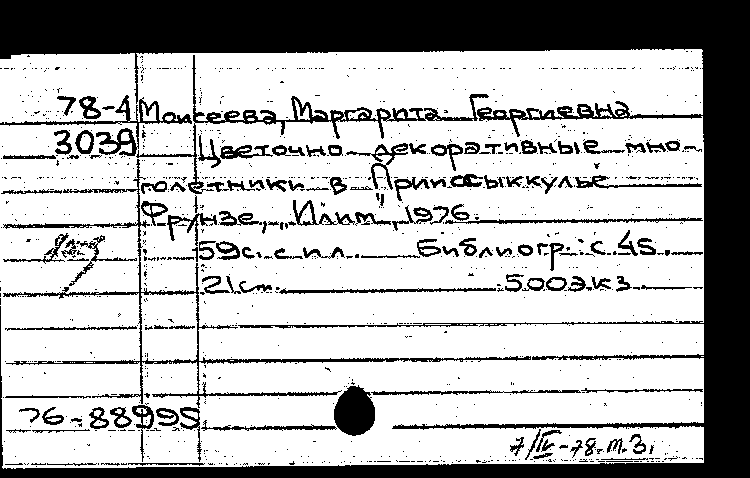 78-4 Моисеева, Маргарита Георгиевна
3039 Цветочно-декоративные мно-
голетники в Прииссыккулье
Фрунзе, "Илим", 1976.
59с. с ил. Библиогр.: с. 45.
21 см. 500 экз.
76-88995
7/IV-78. т.З.